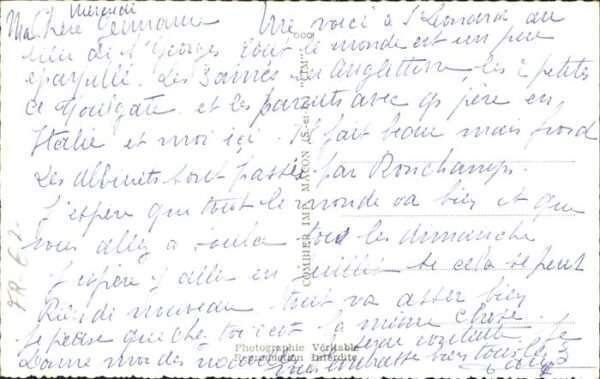 Mercredi
Ma Chère Germaine Me voici à St Leonard au
lieu de St Georges tout le monde est un peu
éparpillé. Les 3 aînés en Angleterre, les 2 petites
à et les parents avec père en
Italie et moi ici. Il fait beau mais froid
Les Albinets sont passés par Ronchamps.
J'espère que tout le monde va bien et que
vous allez à tous les dimanche
J'espère y aller en Juillet si cela se peut
Rien de nouveau tout va assez bien
Je pense que chez toi c'est la même chose
Donne moi des
vous embrasse bien tous
COMBIER IMP. MACON (S.-et-L.) "CIM"
Photographie Véritable
Reproduction Interdite